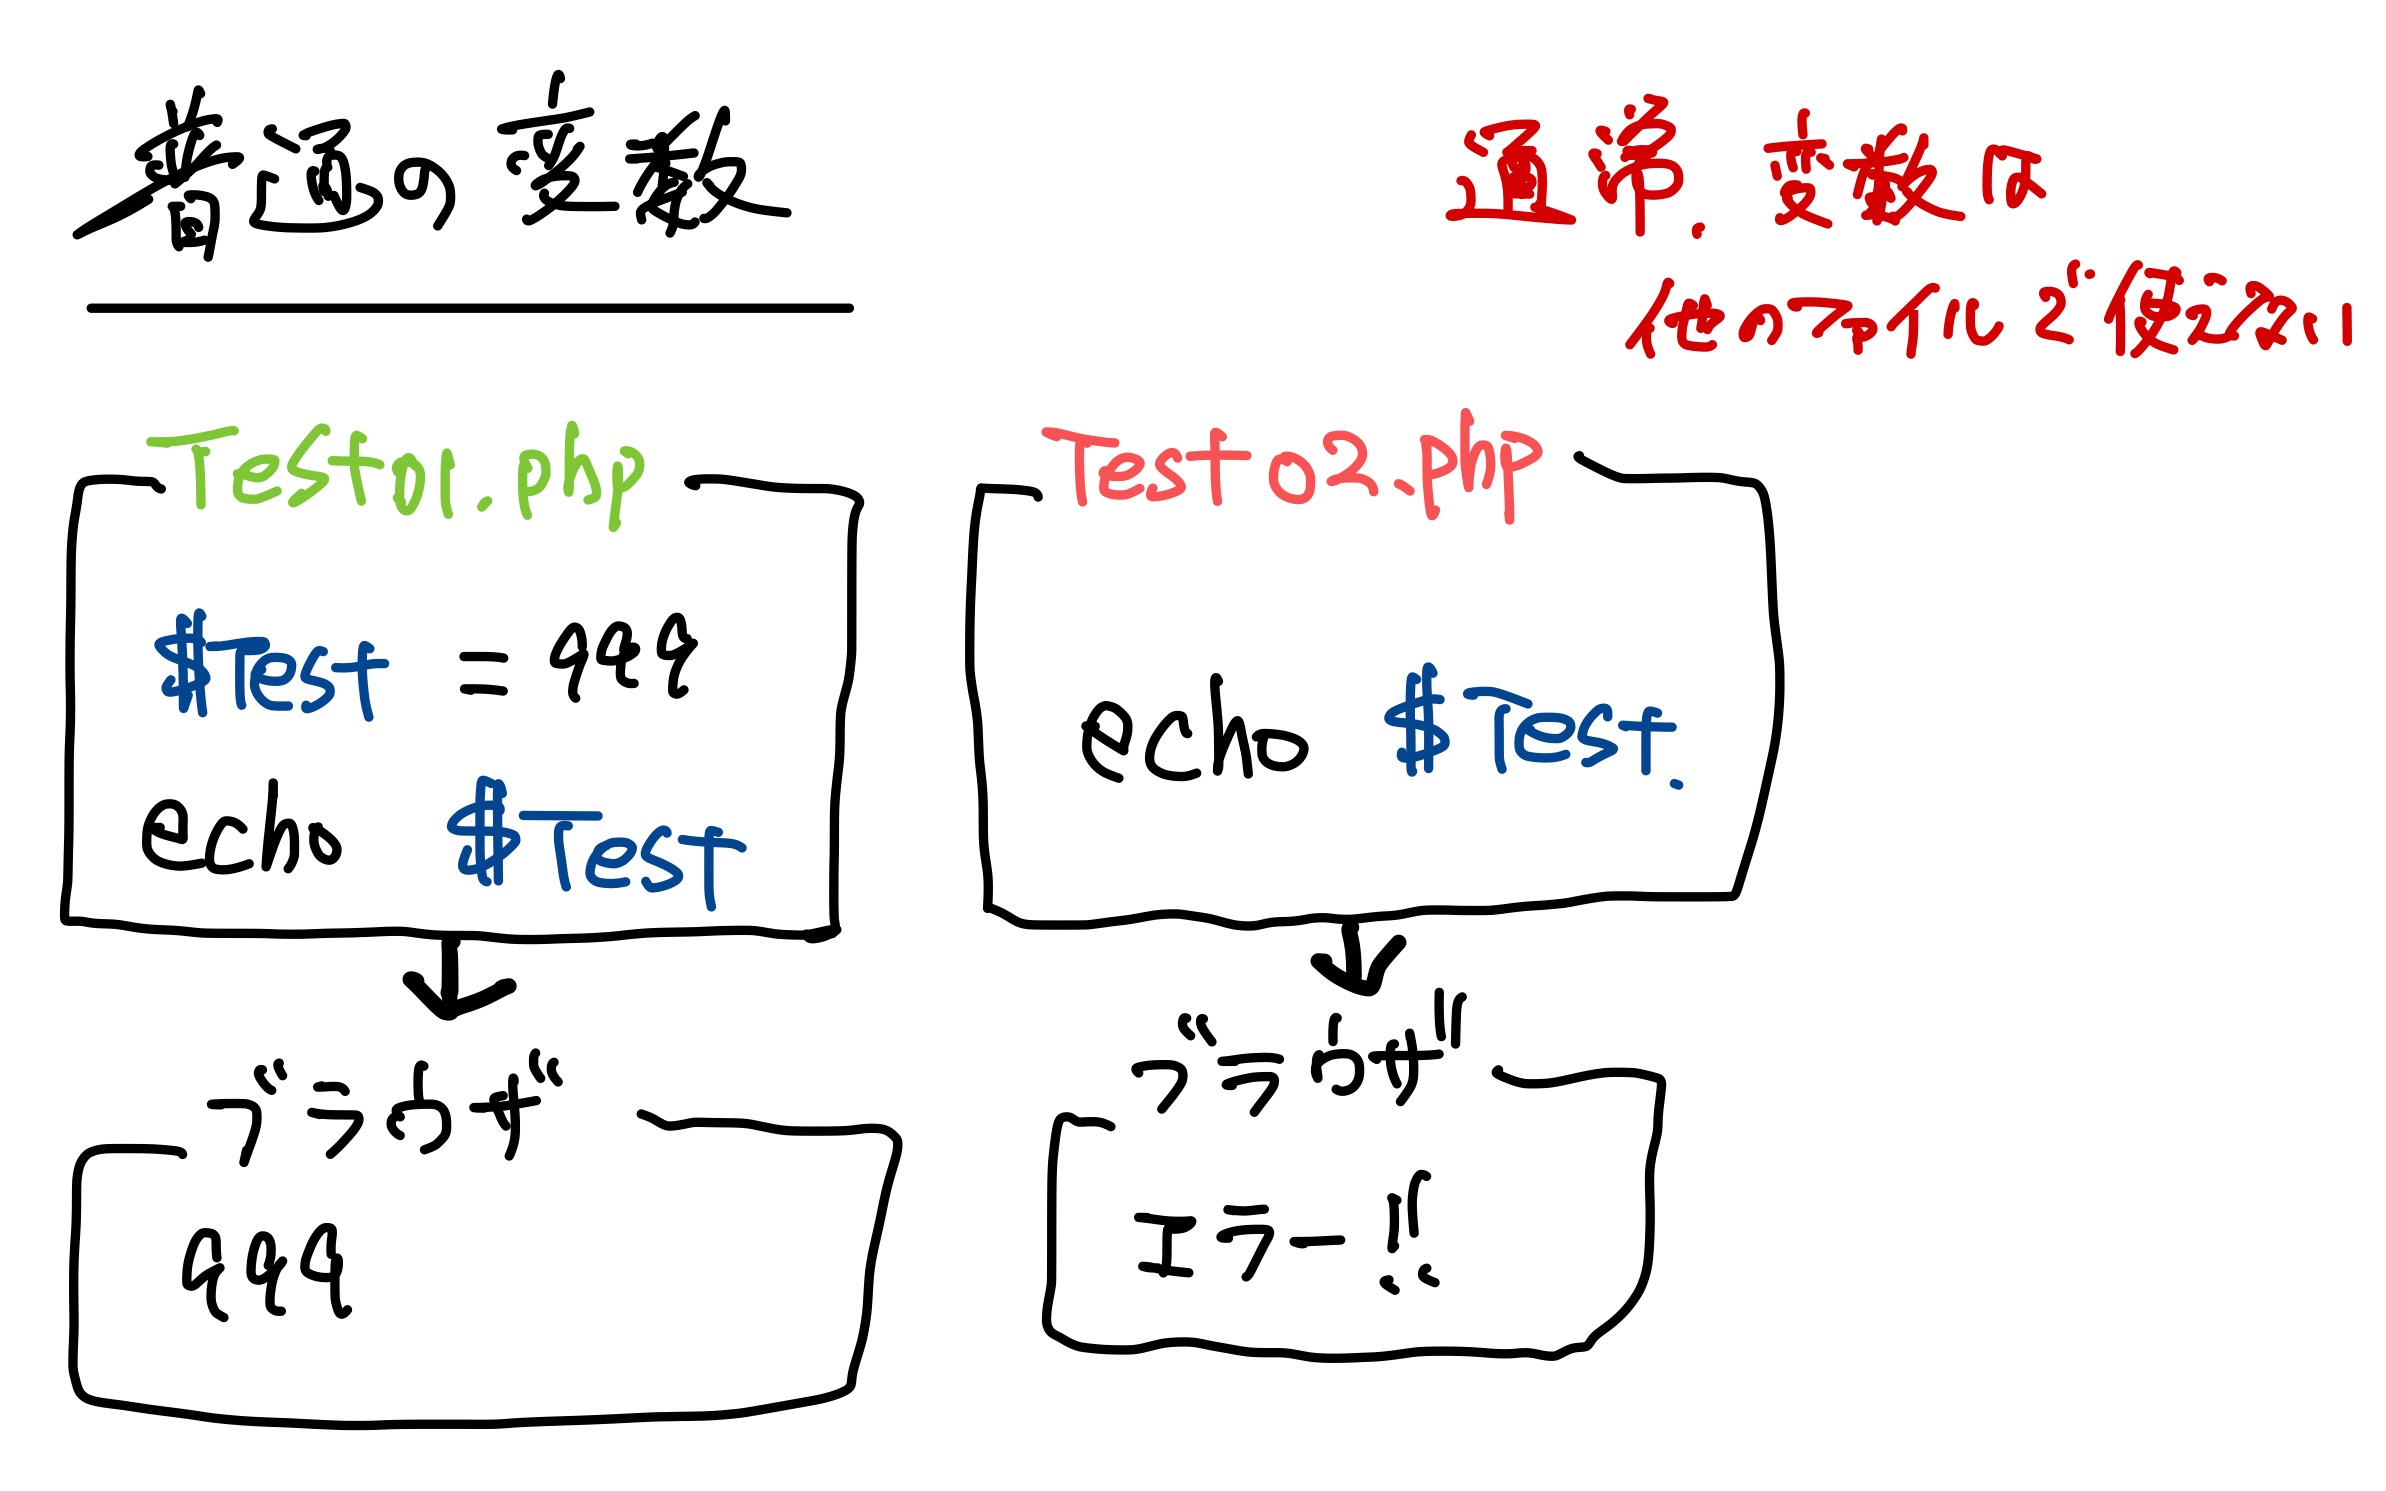 普通の変数
通常、変数は
他のファイルで使えない
Test01.php
$Test = 999
echo $Test
Test02.php
echo $Test.
ブラウザ
999
ブラウザ
エラー!!